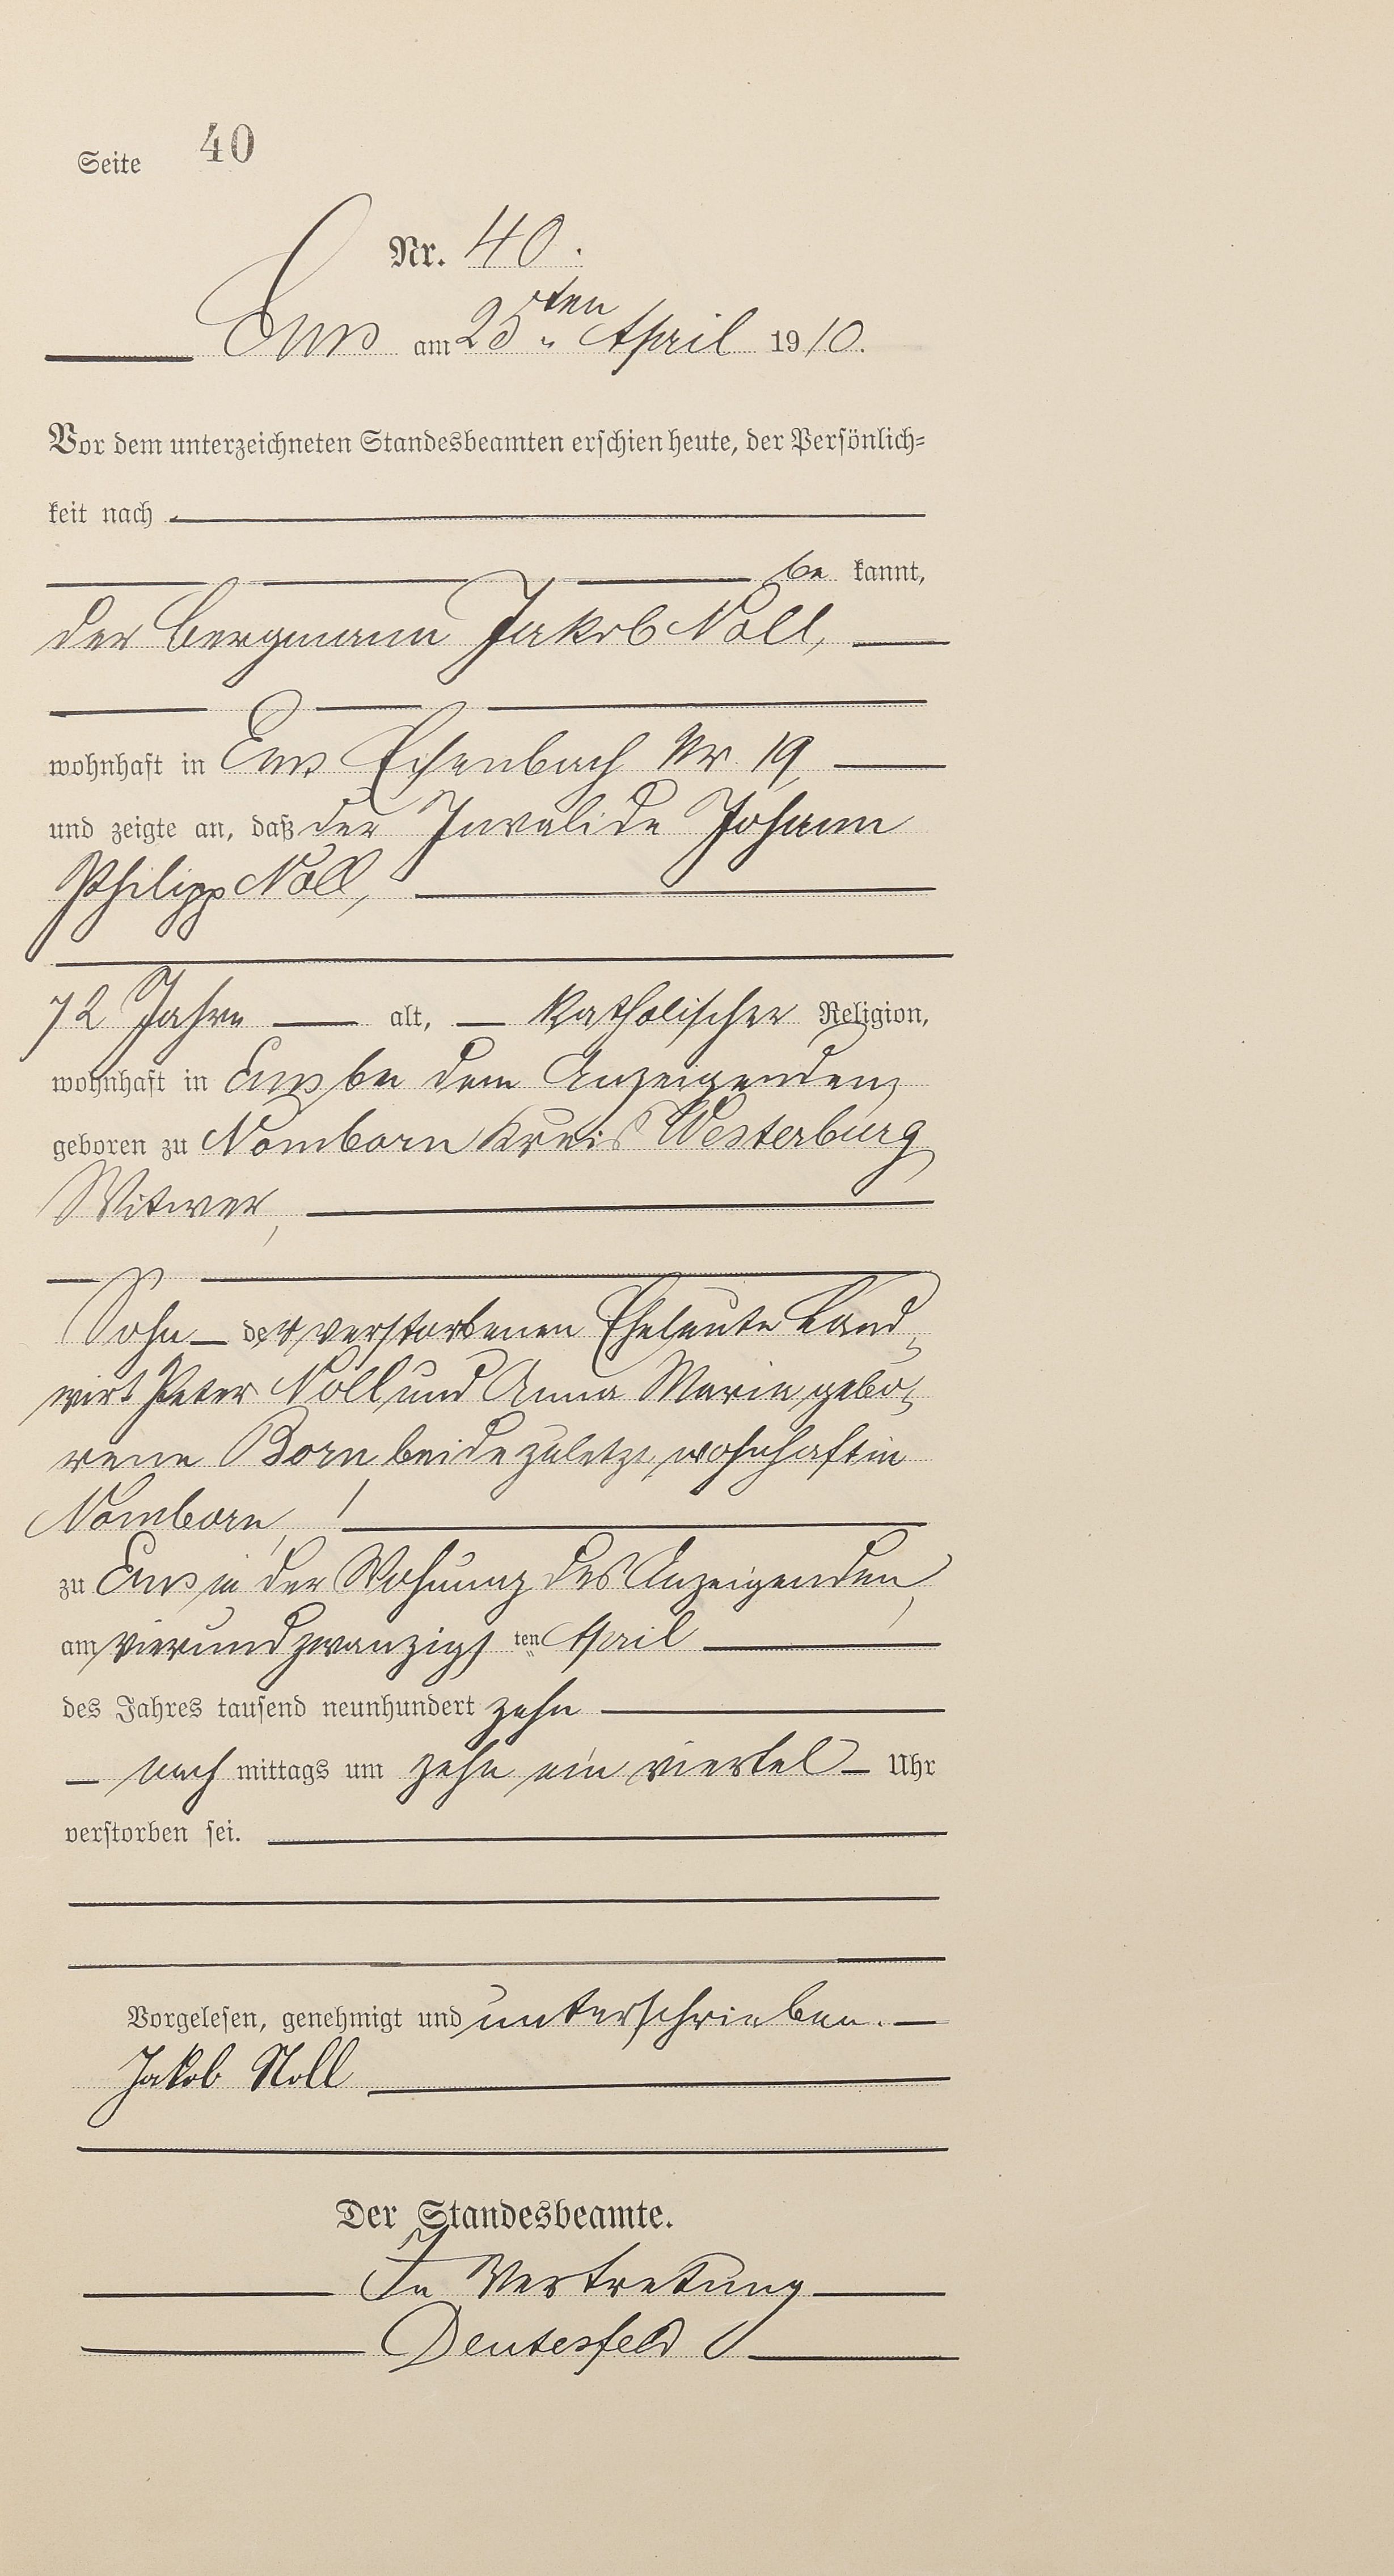 Seite 40
Nr. 40.
Ems am 25ten April 1910.
Vor dem unterzeichneten Standesbeamten erschien heute, der Persönlich=
keit nach
be kannt,
der Bergmann Jakob Noll,
wohnhaft in Ems Eisenbach Nr. 19
und zeigte an, daß der Invalide Johann
Philipp Noll,
72 Jahre alt, katholischer Religion,
wohnhaft in Ems bei dem Anzeigenden,
geboren zu Nomborn Kreis Westerburg
Witwer,
Sohn der verstorbenen Eheleute Land=
wirt Peter Noll und Anna Marie gebo=
rene Born beide zuletzt wohnhaft in
Nomborn,
zu Ems in der Wohnung des Anzeigenden,
am vierundzwanzigsten April
des Jahres tausend neunhundert zehn
nach mittags um zehn ein viertel Uhr
verstorben sei.
Vorgelesen, genehmigt und unterschrieben.
Jakob Noll
Der Standesbeamte.
In Vertretung
Deutesfeld